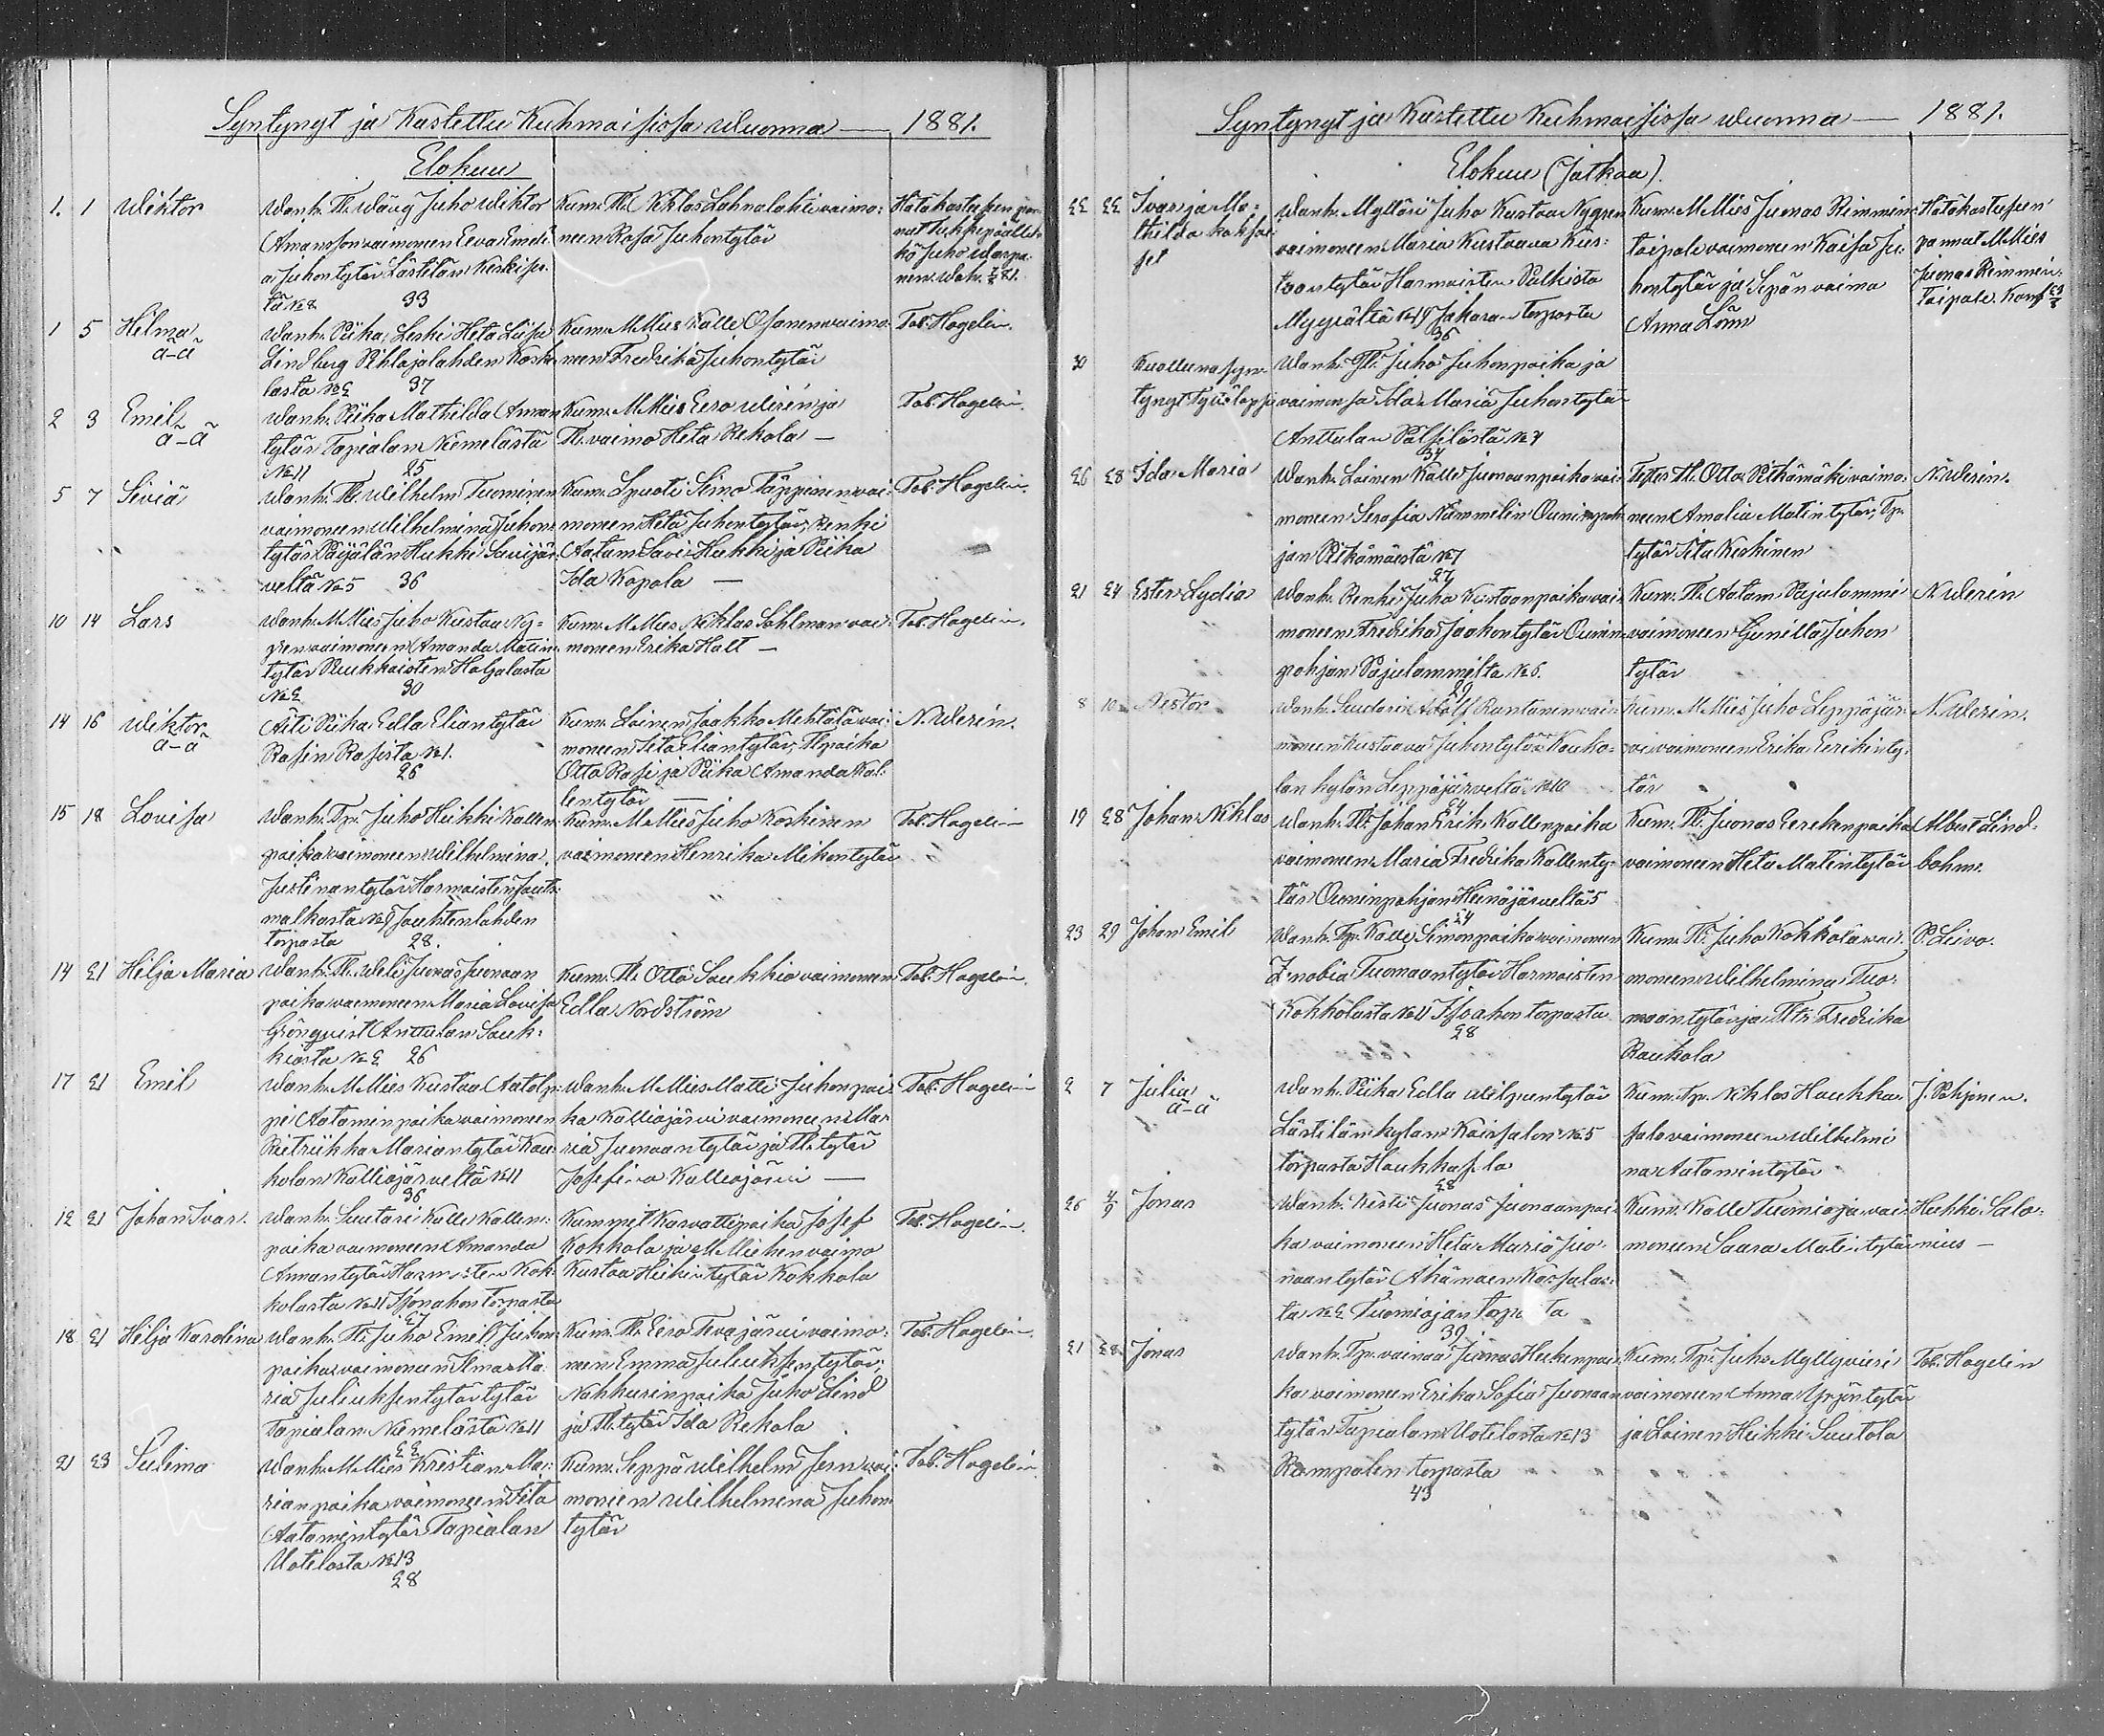 Syntynyt ja Kastettu Kuhmaisissa Wuonna — 1881.
Elokuu
1. 1 Wiktor
Wanh. Tl. Wäwy Juho Wiktor
Amansson vaimoneen Eewa Emeli
a Juhontytär Lästilän Keskise-
tä №8 33
Kum. Tl. Niklas Lahnalahti vaimo-
neen Rosa Juhontytär
Hätäkasteen pan
nut
Juho Warpa-
nen. Wahv. 7/8 81.
1 5 Hilma
ä-ä
Wanh. Piika, Leski Heta Liisa
Lindberg Pihlajalahden Koske-
lasta №2 37
Kum. M Mies Kalle Osanen vaimo-
neen Fredrika Juhontytär
Tob. Hagelin.
2 3 Emil
ä-ä
Wanh. Piika Mathilda Annan
tytär Tapialan Niemelästä
№11 25
Kum. M Mies Eero Wirén ja
Tl. vaimo Heta Rekola —
Tob. Hagelin.
5 7 Siviä
Wanh. Tl. Wilhelm Tuominen
vaimoneen Wilhelmina Juhon-
tytär Päijälän Hukki Savijär-
veltä №5 36
Kum. Spuoti Simo Täppinen vai-
moneen Heta Juhontytär, Renki
Aatam Savi-Hukki ja Piika
Ida Kopola —
Tob. Hagelin.
10 14 Lars
Wanh. M Mies Juho Kustaa Ny-
gren vaimoneen Amanda Matin
tytär Puukkoisten Haljalasta
№2 30
Kum. M Mies Niklas Sahlman vai-
moneen Erika Hall —
Tob. Hagelin.
14 16 Wiktor
ä-ä
Äiti Piika Edla Eliantytär
Rasin Rasista №1.
26
Kum. Loinen Jaakko Mehtälä vai-
moneen Fita Eliantytär, Tlpoika
Otto Rasi ja Piika Amanda Kal-
lentytär —
N. Werin.
15 18 Lovisa
Wanh. Tp. Juho Heikki Kallen
poika vaimoneen Wilhelmina
Justinantytär Harmoisten Jouts-
malkasta №9 Jauhtenlahden
torpasta 28.
Kum. M Mies Juho Koskinen
vaimoneen Henrika Mikontytär
Tob. Hagelin
14 21 Hilja Maria
Wanh. Tl. Weli Juonas Juonaan
poika vaimoneen Maria Lovisa
Grönqvist Anttulan Sauk-
kiosta №2 26
Kum. Tl. Otto Saukkio vaimoneen
Edla Nordström
Tob. Hagelin.
17 21 Emil
Wanh. M Mies Kustaa Aatolp-
pi Aatamin poika vaimoneen
Rietriikka Mariantytär Kau-
kolan Kalliojärveltä №11
36
Wanh. M Mies Matti Juhonpoi-
ka Kalliojärvi vaimoneen Ma-
ria Juonaantytär ja Tl. tytär
Josefina Kalliojärvi —
Tob. Hagelin
12 21 Johan Ivar.
Wanh. Suutari Kalle Kallen-
poika vaimoneen Amanda
Annantytär Harmoisten Kok-
kolasta №11 Isonahon Torpasta
27
Kummit Kasvattipoika Josef
Kokkola ja M Miehen vaimo
Kustaa Heikintytär Kokkola
Tob. Hagelin.
18 21 Hilja Karolina
Wanh. Tl. Juho Emil Juhon-
poika vaimoneen Ilma Ma-
ria Juliuksentytär tytär
Tapialan Niemelästä №11
22
Kum. Tl. Eero Tevajärvi vaimo-
neen Emma Juliuksentytär
Nahkurinpoika Juho Lind
ja Tl. tytär Ida Rekola
Tob. Hagelin
21 23 Sulima
Wanh. M Mies Kristian Ma-
rian poika vaimoneen Fita
Aatamintytär Tapialan
Uotilasta №13
28
Kum. Seppä Wilhelm Jern vai-
moneen Wilhelmina Juhon-
tytär
Tob. Hagelin
Syntynyt ja Kastettu Kuhmaisissa Wuonna — 1881.
Elokuu (Jatkaa).
22 23 Ivar ja Ma-
thilda kaksoi-
set
Wanh. Mylläri Juho Kustaa Nygren
vaimoneen Maria Kustaava Kus-
taantytär Harmoisten Pulkista
Myyrältä №19 Jokaran torpasta
36
Kum. M Mies Juonas Rimmin-
taipale vaimoneen Kaisa Ju-
hontytär ja Sepän vaimo
Anna Lönn
Hätäkasteen
pannut M Mies
Juonas Rimmin-
taipale. Konf 23/8
30 Kuolluna syn-
tynyt Tyttölapsi
Wanh. Tl. Juho Juhonpoika ja
vaimonsa Ida Maria Juhontytär
Anttulan Pälsilästä №4
34
26 28 Ida Maria
Wanh. Loinen Kalle Juonaanpoika vai-
moneen Serafia Nummelin Ouninpoh-
jan Pitkämäestä №7
27
Tl. Otto Pitkämäki vaimo-
neen Amalia Matintytär, Tp.
tytär Fita Keskinen
N. Werin.
21 24 Ester Lydia
Wanh. Renki Juha Kustaanpoika vai-
moneen Fredrika Jaakontytär Ounin-
pohjan Pajulammilta №6.
29
Kum. Tl. Aatam Pajulammi
vaimoneen Gunilla Juhon
tytär
N. Werin
8 10 Nestor
Wanh. Suutari Adolf Rantanen vai-
moneen Kustaava Juhontytär Kauko-
lan kylän Leppäjärveltä №10
24
Kum. M Mies Juho Leppäjär-
vi vaimoneen Erika Eerikinty-
tär
N. Werin.
19 28 Johan Niklas
Wanh. Tl. Johan Erik Kallenpoika
vaimoneen Maria Fredrika Kallenty-
tär Ouninpohjan Heinäjärveltä 5
24
Kum. Tl. Juonas Eerekenpoika
vaimoneen Heta Matintytär
Albert Lind-
bohm.
23 29 Johan Emil
Wanh. Tp. Kalle Simonpoika vaimoneen
Zenobia Tuomaantytär Harmoisten
Kokkolasta №11 Isoahon torpasta
28
Kum. Tl. Juho Kokkola vai-
moneen Wilhelmina Tuo-
maantytär ja Tltr. Fredrika
Raukola
P. Leivo.
2 7 Julia
ä-ä
Wanh. Piika Edla Wilpuntytär
Lästilän kylän Kaivsalon №5
torpasta Haukkasalo
28
Kum. Tp. Niklas Haukka-
salo vaimoneen Wilhelmi
na Aatamintytär
J. Pohjonen.
26 4/9 Jonas
Wanh. Kirsti Juonas Juonaanpoi-
ka vaimoneen Heta Maria Juo-
naantytär Ahämaen Karjalas-
ta №2 Tuomiojan Torpasta
39
Kum. Kalle Tuomioja vai-
moneen Saara Matintytär
Heikki Salo-
nius —
21 28 Jonas
Wanh. Tp. vainaa Juonas Heikinpoi-
ka vaimoneen Erika Sofia Juonaan
tytär Tapialan Uotilasta №13
Rampalen torpasta
43
Kum. Tp. Juho Myllyvieri
vaimoneen Anna Yrjöntytär
ja Loinen Heikki Suutola
Tob. Hagelin